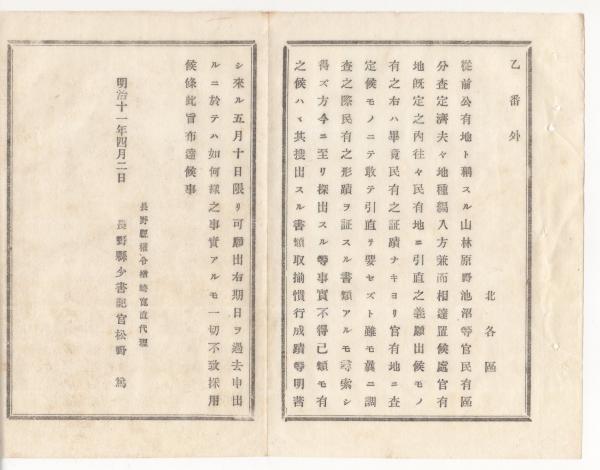 乙番外
北各區
從前公有地ト稱スル山林原野池沼等官民有區
分査定濟夫々地種編入方兼而相達置候處官有
地旣定之内往々民有地ニ引直之義願出候モノ
有之右ハ畢竟民有之証蹟ナキヨリ官有地ニ査
定候モノニテ敢テ引直ヲ要セズト雖モ曩ニ調
査之際民有之形蹟ヲ証スル書類アルモ尋索シ
得ズ方今ニ至リ探出スル等事實不得已類モ有
之候ハヾ其搜出スル書類取揃慣行成蹟等明著
シ來ル五月十日限リ可願出右期日ヲ過去申出
ルニ於テハ如何樣之事實アルモ一切不致採用
候條此旨布達候事
明治十一年四月二日
長野縣權令楢崎寛直代理
長野縣少書記官松野篤